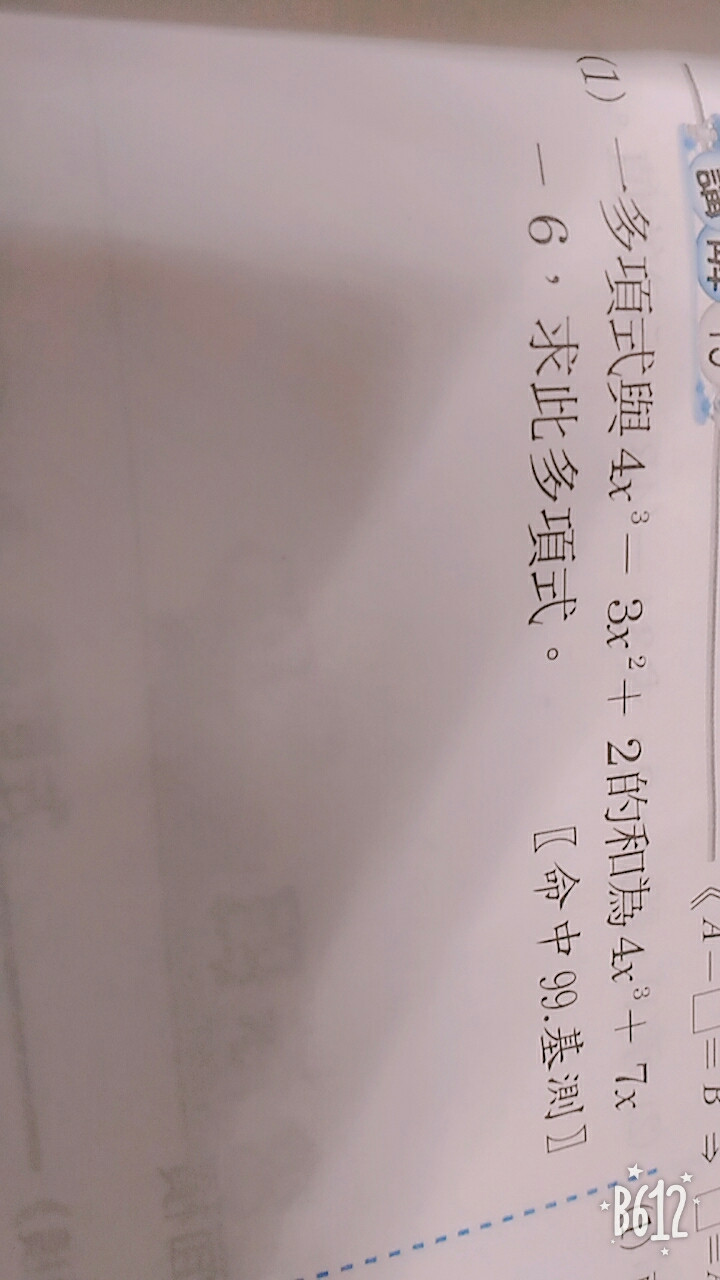 《A－□＝B ⇒ □＝
(1) 一多項式與 4x³－3x²＋2的和為 4x³＋7x
－6，求此多項式。 〖命中99.基測〗
B612